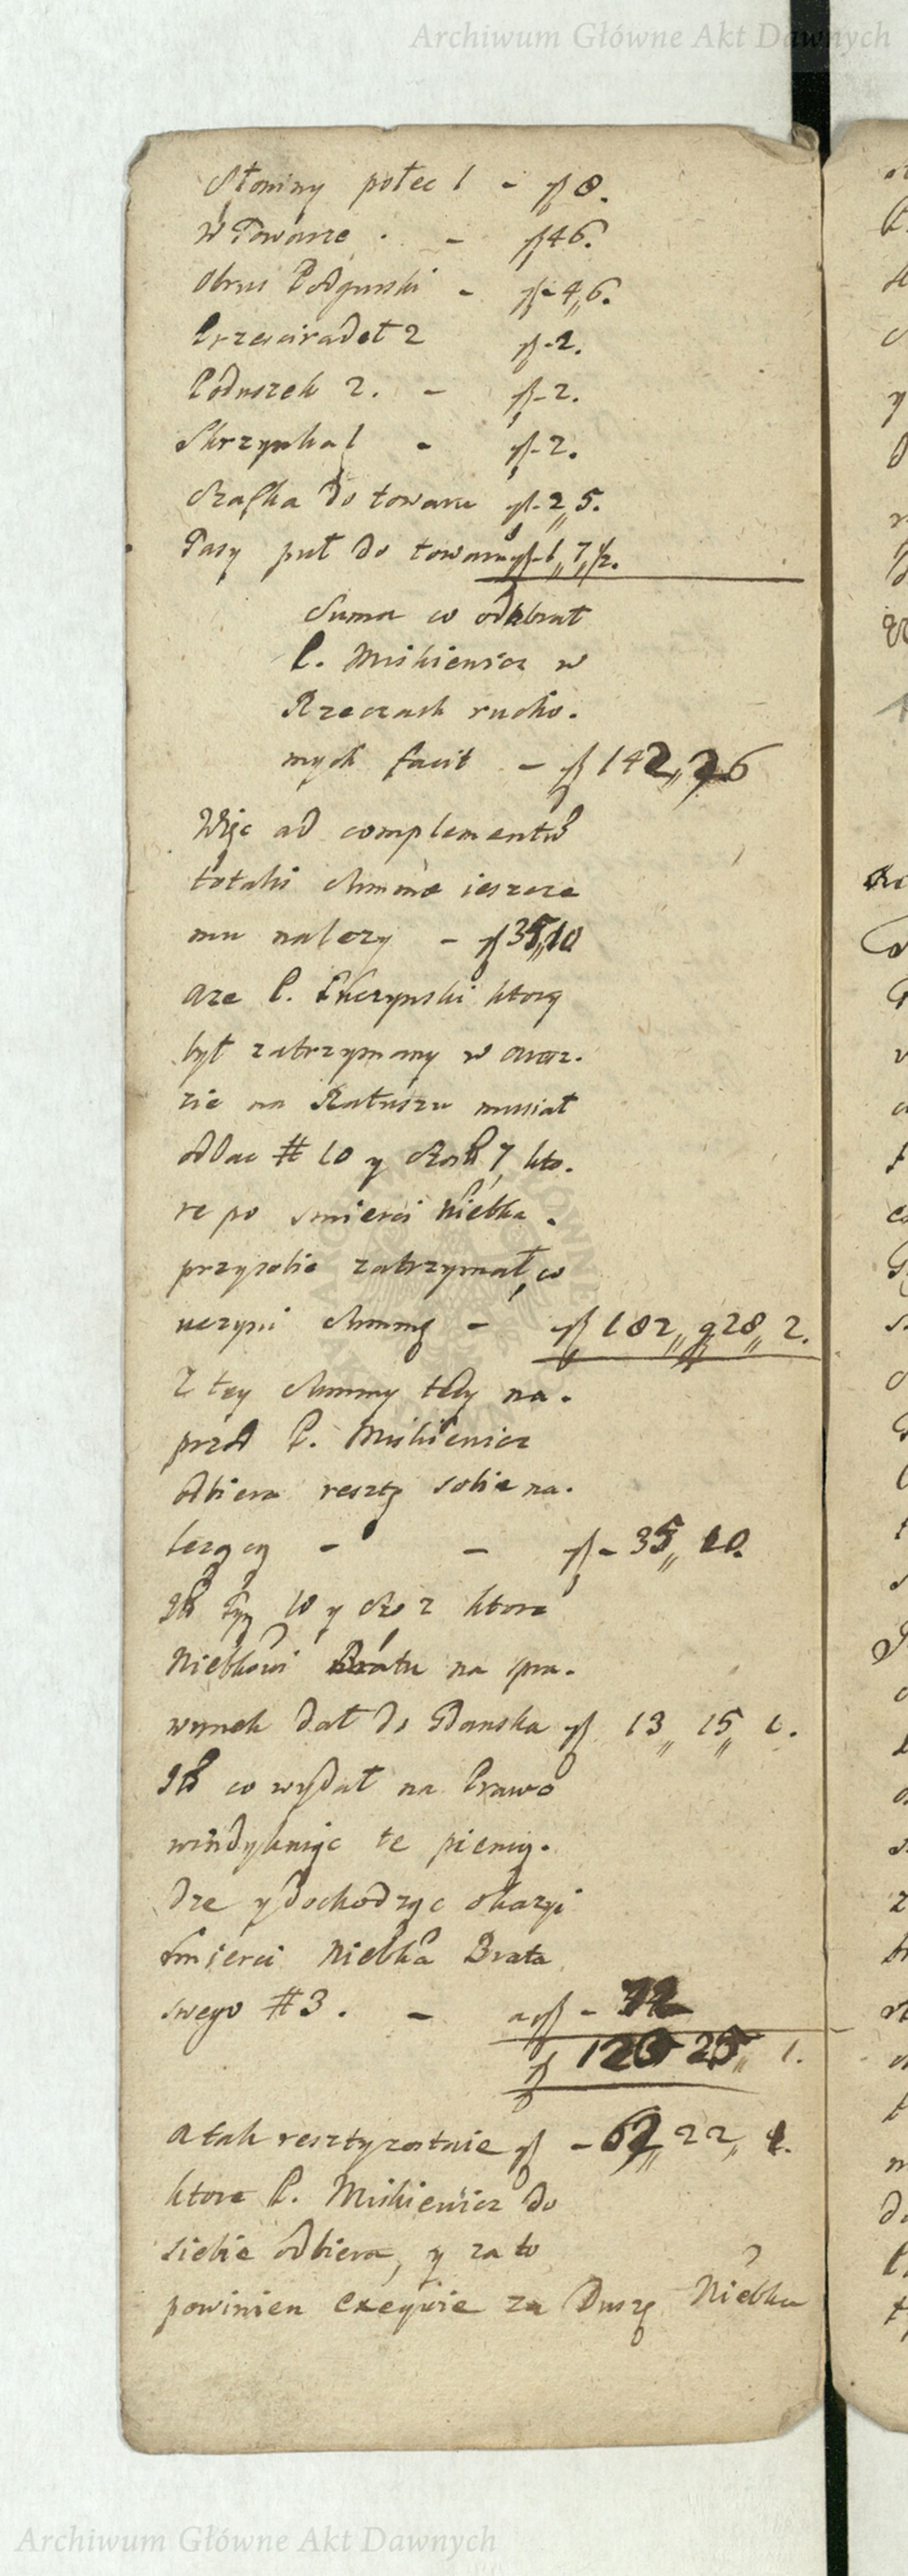 Archiwum Główne Akt Dawnych
Słoniny połec 1 - zł 8.
W Towarze . - zł 46.
Obrus Podgurski - zł - 4,, 6.
Przescieradeł 2 zł - 2.
Poduszek 2. - zł - 2.
Skrzynka 1 - zł - 2.
Szafka do towaru zł - 2,, 5.
Pasy puł do towaru zł - 1,, 7,, ½.
Suma co odebrał
P. Miskiewicz w
Rzeczach rucho.
mych facit - zł 142,, 26
Więc ad complementũ
totalis summe ieszcze
mu nalezy - zł 35,, 10
aze P. ktory
był zatrzymany w
zie na Ratuszu musiał
oddac # 10 y 7, kto.
re po smierci Niebka .
przysobie zatrzymał, co
uczyni summę - zł 182,, g 28,, 2.
Z tey summy tedy na.
przod P. Miskiewicz
odbiera resztę sobie na.
lezący - - zł - 35,, 10.
10 y 2 ktore
Niebkowi Bratu na spra.
wunek dał do Gdanska zł 13,, 15,, 1.
co wydał na Prawo
windykuiąc te pienią.
dze y dochodząc okazyi
smierci Niebka Brata
swego # 3 . - zł - 72
zł 120 25,, 1.
a tak reszty zostaie zł - 62,, 22,, 1.
ktore P. Miskiewicz do
siebie odbiera, y za to
powinien Exeqwie za Duszę Niebka
Archiwum Główne Akt Dawnych